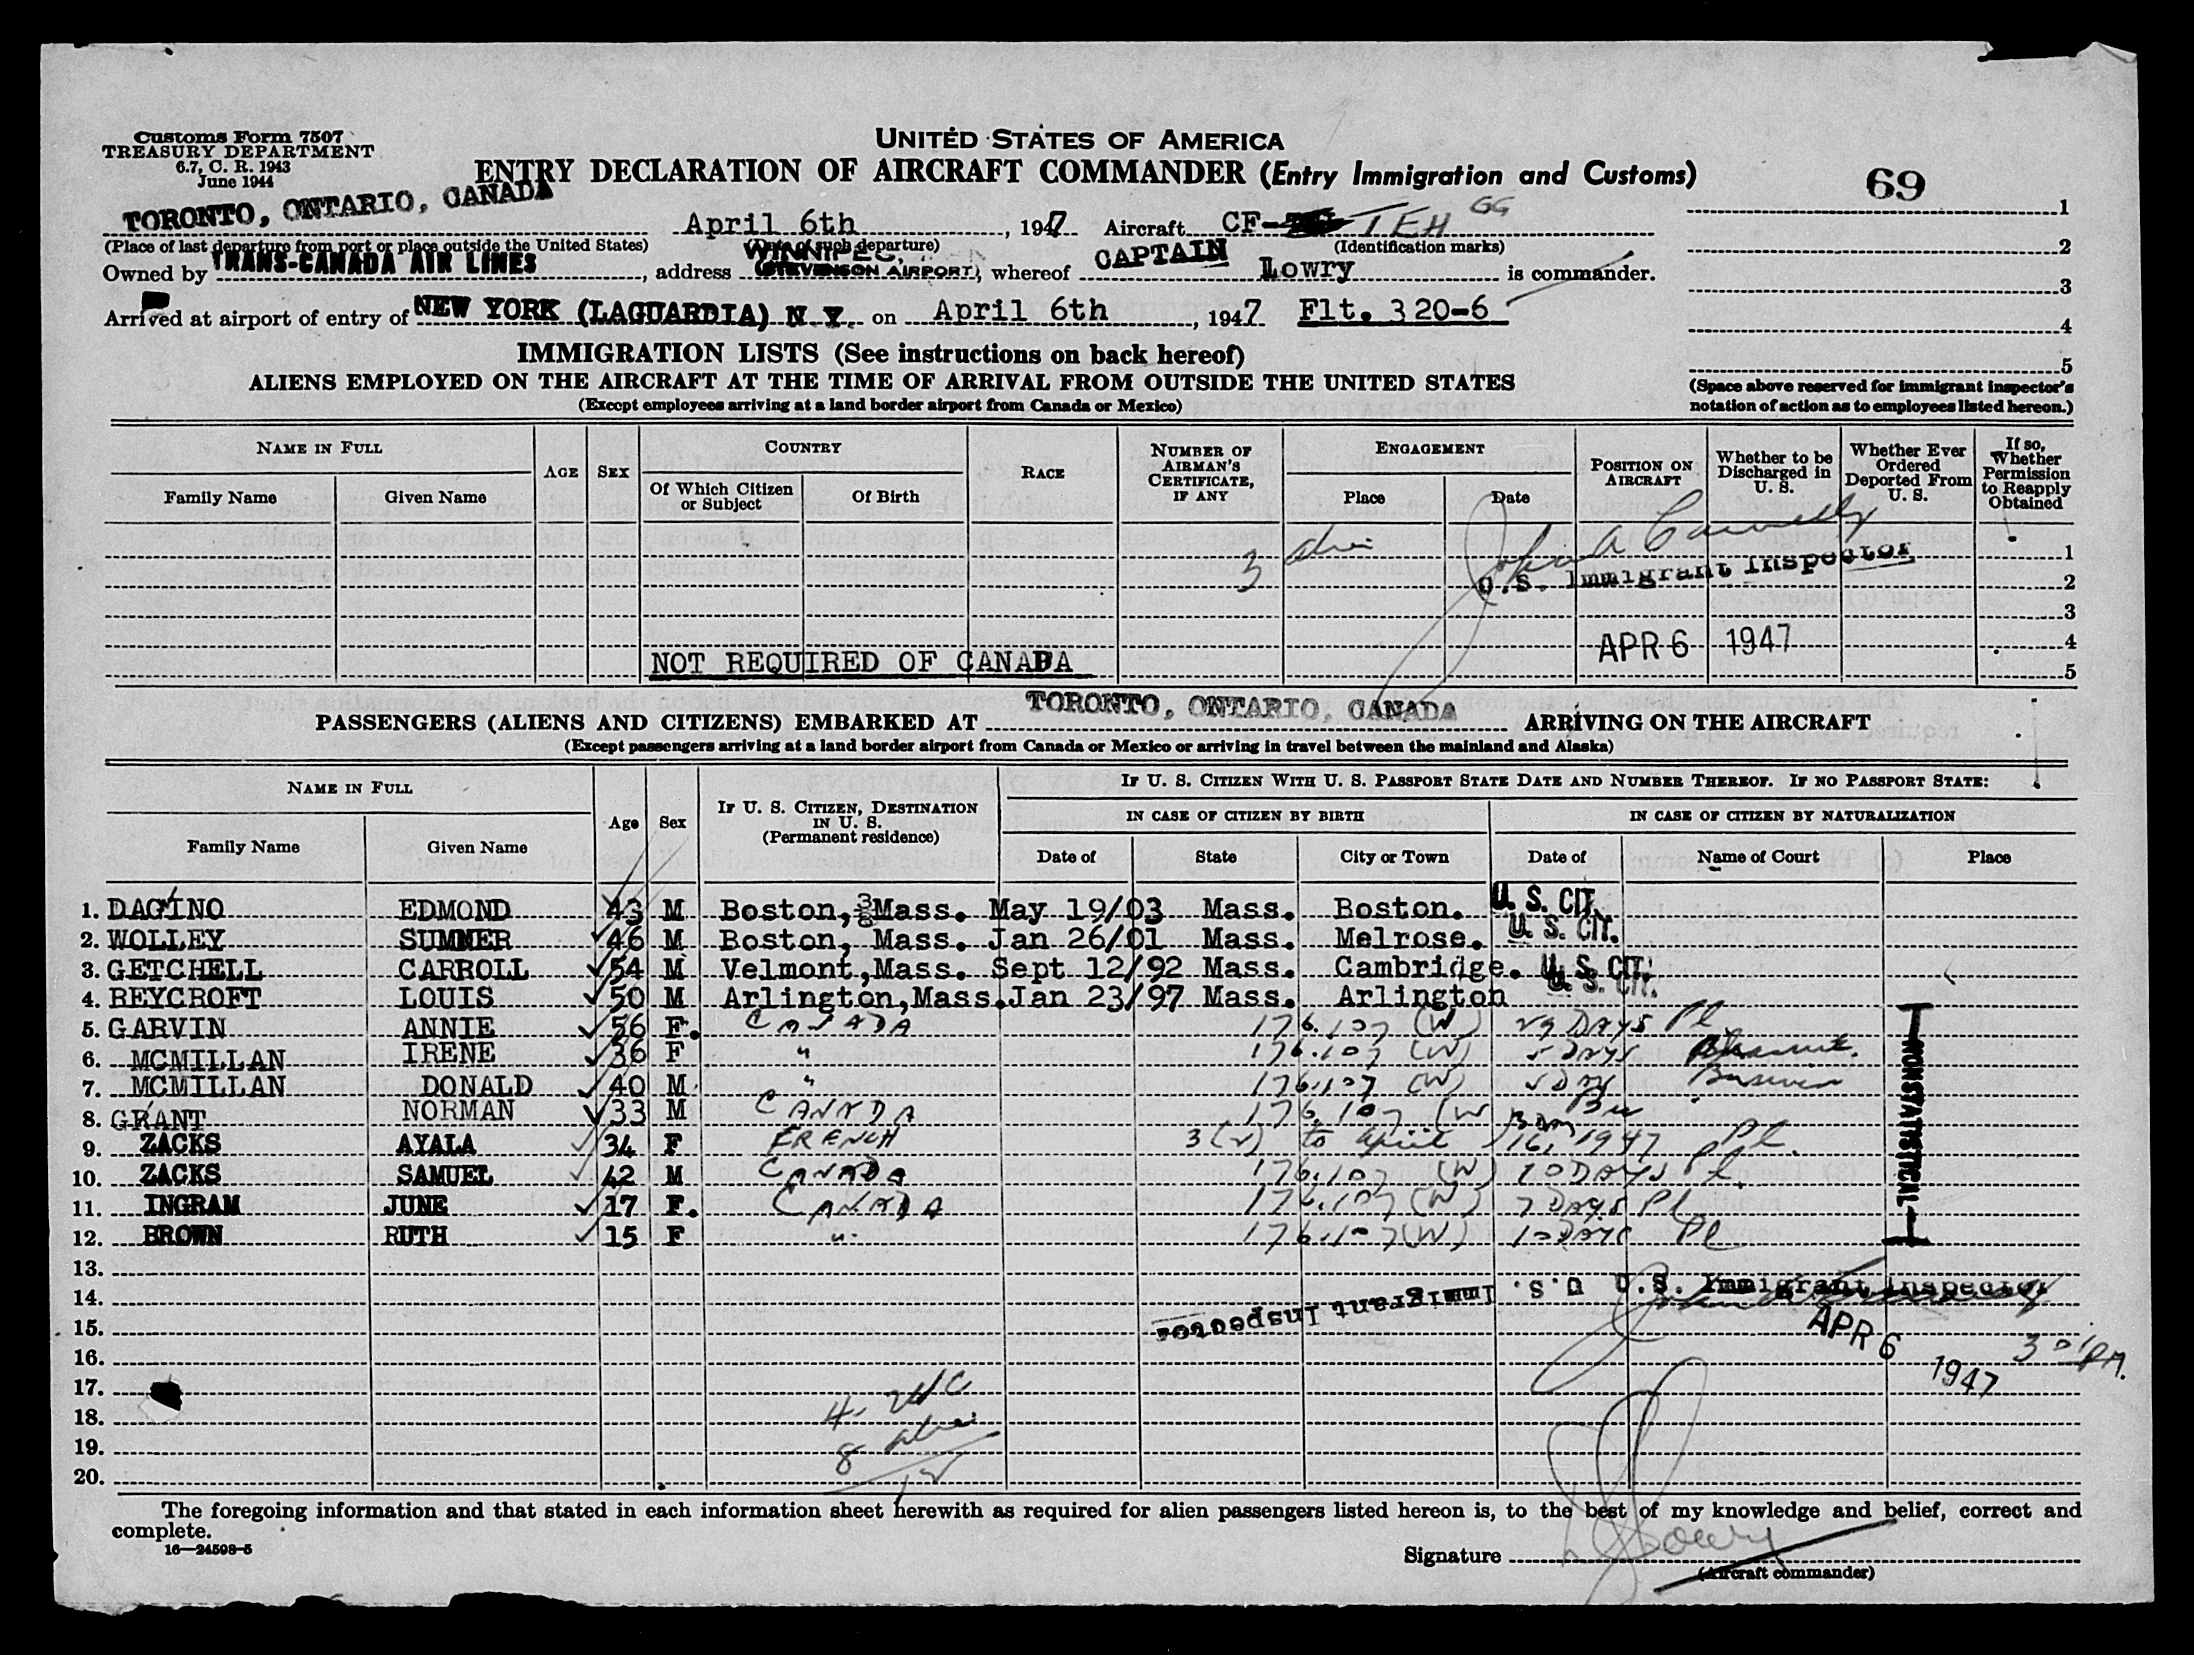 Customs Form 7507
TREASURY DEPARTMENT
6.7, C. R. 1943
June 1944
UNITED STATES OF AMERICA
ENTRY DECLARATION OF AIRCRAFT COMMANDER (Entry Immigration and Customs)
69
TORONTO, ONTARIO, CANADA April 6th, 1947 Aircraft CF- TEH GG
(Place of last departure from port or place outside the United States) (Date of such departure) (Identification marks)
Owned by TRANS-CANADA AIR LINES, address WINNIPEG, (STEVENSON AIRPORT), whereof CAPTAIN Lowry is commander.
Arrived at airport of entry of NEW YORK (LAGUARDIA) N. Y. on April 6th, 1947 Flt. 320-6
1
2
3
4
5
(Space above reserved for immigrant inspector's notation of action as to employees listed hereon.)
IMMIGRATION LISTS (See instructions on back hereof)
ALIENS EMPLOYED ON THE AIRCRAFT AT THE TIME OF ARRIVAL FROM OUTSIDE THE UNITED STATES
(Except employees arriving at a land border airport from Canada or Mexico)
NAME IN FULL
Family Name Given Name
AGE SEX
COUNTRY
Of Which Citizen or Subject Of Birth
RACE
NUMBER OF AIRMAN'S CERTIFICATE, IF ANY
ENGAGEMENT
Place Date
POSITION ON AIRCRAFT
Whether to be Discharged in U. S.
Whether Ever Ordered Deported From U. S.
If so, Whether Permission to Reapply Obtained
3 John A 1
U.S. Immigrant Inspector 2
3
APR 6 1947 4
NOT REQUIRED OF CANADA 5
PASSENGERS (ALIENS AND CITIZENS) EMBARKED AT TORONTO, ONTARIO, CANADA ARRIVING ON THE AIRCRAFT
(Except passengers arriving at a land border airport from Canada or Mexico or arriving in travel between the mainland and Alaska)
NAME IN FULL
Family Name Given Name
Age Sex
IF U. S. CITIZEN, DESTINATION IN U. S. (Permanent residence)
IF U. S. CITIZEN WITH U. S. PASSPORT STATE DATE AND NUMBER THEREOF. IF NO PASSPORT STATE:
IN CASE OF CITIZEN BY BIRTH IN CASE OF CITIZEN BY NATURALIZATION
Date of State City or Town Date of Name of Court Place
1. DAGINO EDMOND 43 M Boston, Mass. May 19/03 Mass. Boston. U. S. CIT.
2. WOLLEY SUMNER 46 M Boston, Mass. Jan 26/01 Mass. Melrose. U. S. CIT.
3. GETCHELL CARROLL 54 M Velmont, Mass. Sept 12/92 Mass. Cambridge. U. S. CIT.
4. REYCROFT LOUIS 50 M Arlington, Mass. Jan 23/97 Mass. Arlington U. S. CIT.
5. GARVIN ANNIE 56 F. CANADA 176.107 (W) 29 DAYS Pl
6. MCMILLAN IRENE 36 F " 176.107 (W) 5 DAYS
7. MCMILLAN DONALD 40 M " 176.107 (W) Business
8. GRANT NORMAN 33 M CANADA 176.107 (W) Bu
9. ZACKS AYALA 34 F FRENCH 3(2) to April 16, 1947 Pl.
10. ZACKS SAMUEL 42 M CANADA 176.107 (W) 10 DAYS Pl.
11. INGRAM JUNE 17 F. CANADA 176.107 (W) 7 DAYS Pl
12. BROWN RUTH 15 F " 176.107 (W) 10 DAYS Pl
NONSTATISTICAL
13.
14. U.S. Immigrant Inspector U.S. Immigrant Inspector
15. APR 6 1947
16. 3 PM.
17. 4
18.
19. 8
20. 12
The foregoing information and that stated in each information sheet herewith as required for alien passengers listed hereon is, to the best of my knowledge and belief, correct and
complete.
16—24598-5
Signature Lowry
(Aircraft commander)